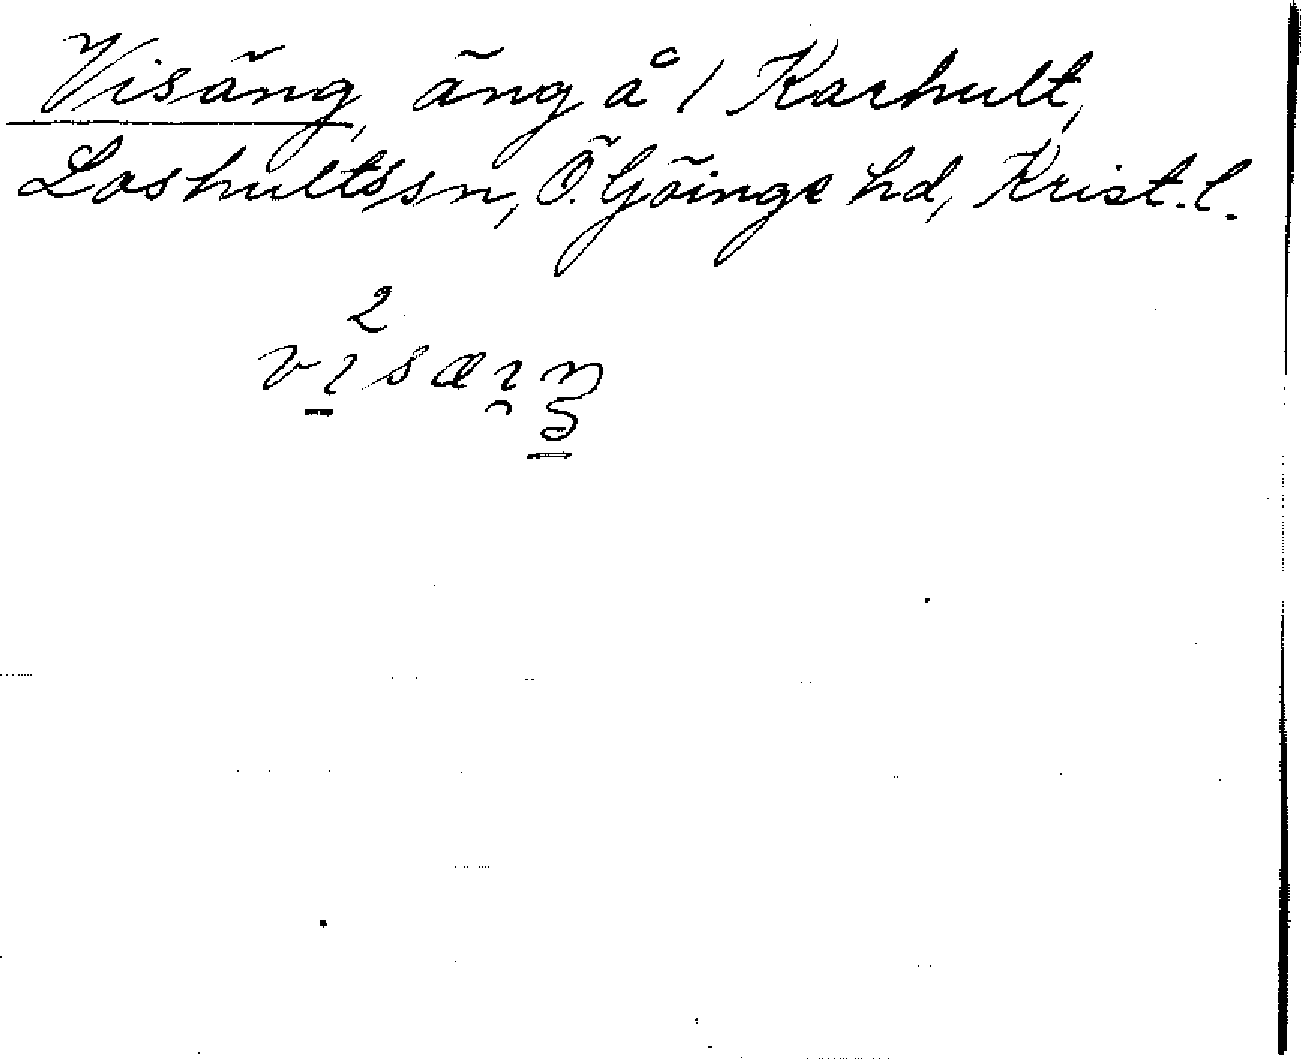 Visäng, äng å 1 Karhult,
Loshultssn, Ö. Göinge hd, Krist. l.
2
vısæıŋ